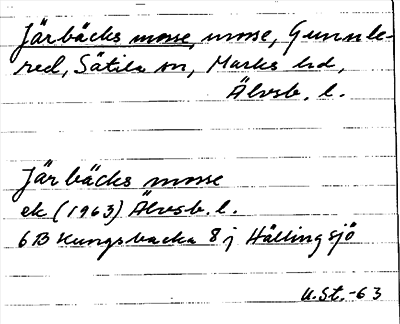 Järbäcks mosse, mosse, Gunnbe-
red, Sätila sn, Marks hd,
Älvsb. l.
Järbäcks mosse
ek (1963) Älvsb. l.
6B Kungsbacka 8 j Hällingsjö
U.St.-63